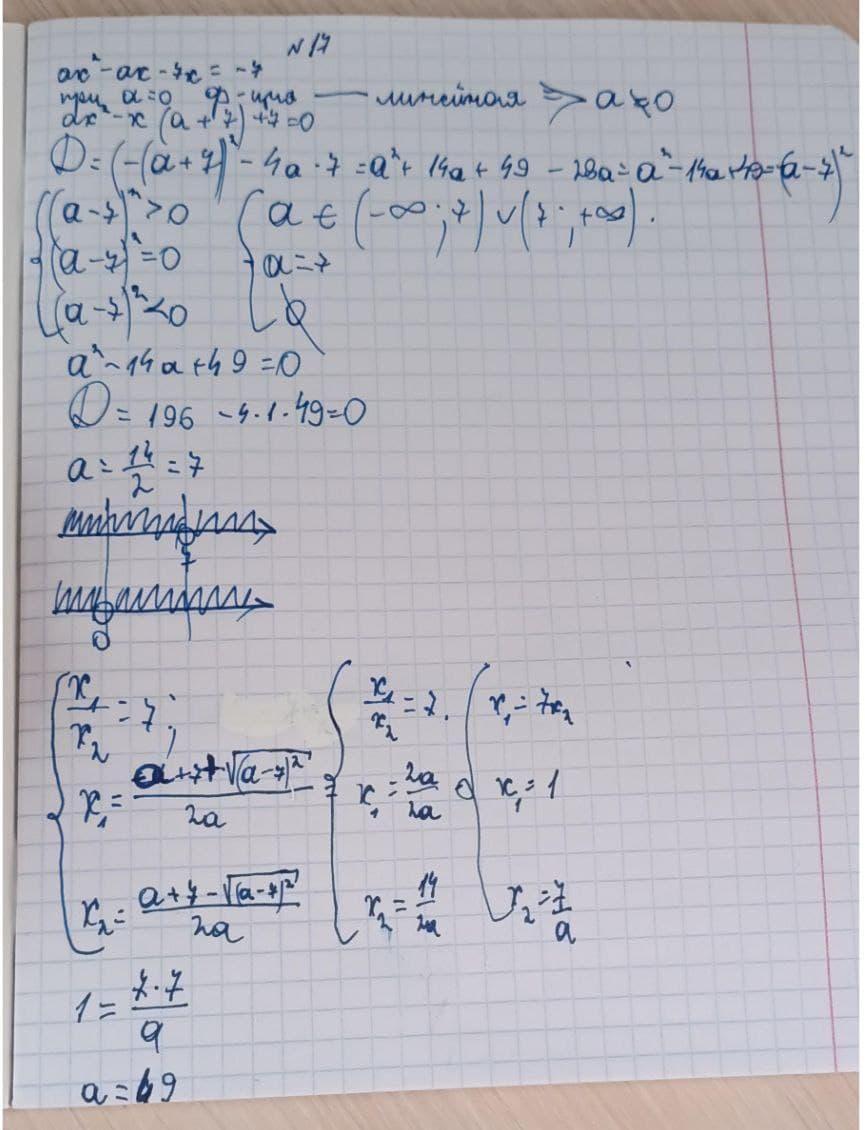 N 17
ax² - ax - 7x = -7
при a=0 ф-ция — линейная ⇒ a ≠ 0
ax² - x (a + 7) + 7 = 0
D = (-(a+7)² - 4a · 7 = a² + 14a + 49 - 28a = a² - 14a + 49 = (a-7)²
(a-7)² > 0 a ∈ (-∞; 7) ∪ (7; +∞).
(a-7)² = 0 a = 7
(a-7)² < 0 ∅
a² - 14a + 49 = 0
D = 196 - 4·1·49 = 0
a = 14/2 = 7
7
0
x₁/x₂ = 7; x₁/x₂ = 7. x₁ = 7x₂
x₁ = (a+7+√(a-7)²)/2a x₁ = 2a/2a x₁ = 1
x₂ = (a+7-√(a-7)²)/2a x₂ = 14/2a x₂ = 7/a
1 = 7·7/a
a = 49